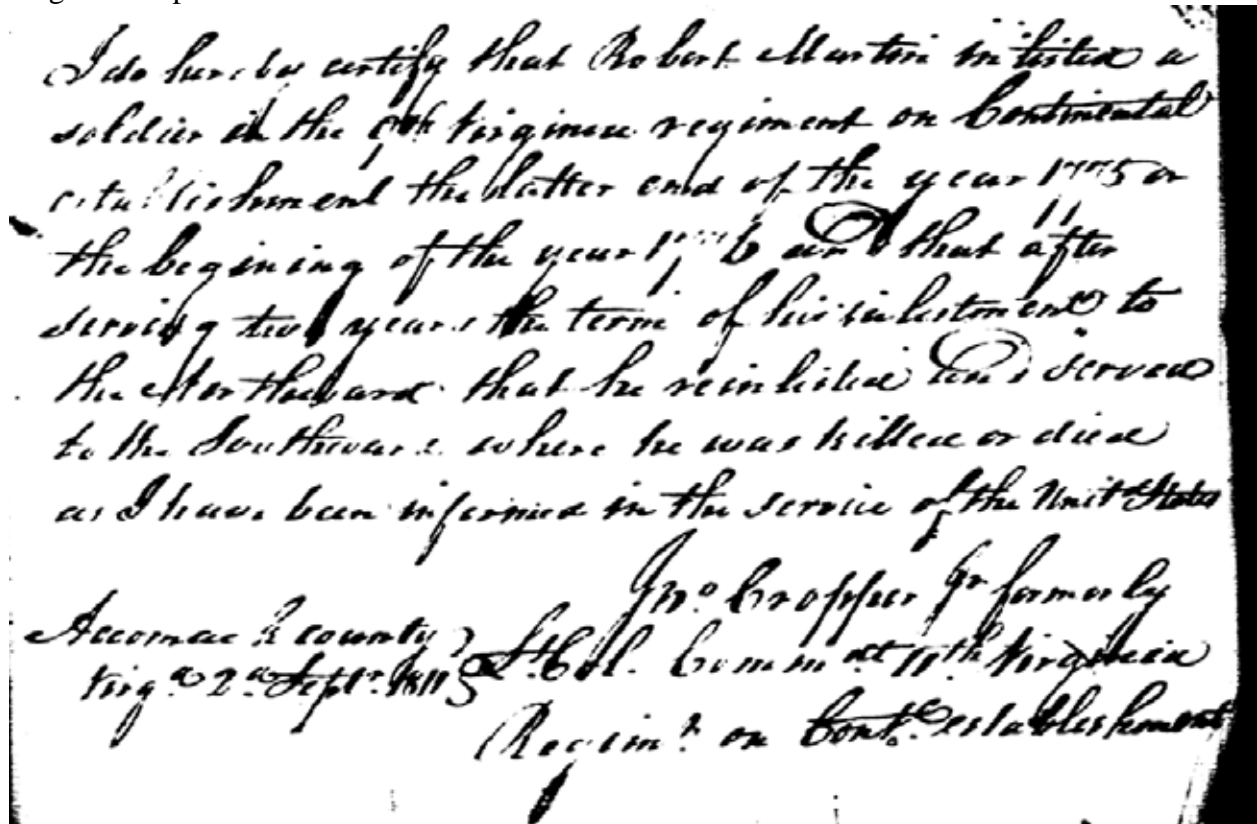 I do hereby certify that Robert Martin inlisted a
soldier in the 9th Virginia regiment on Continental
establishment the latter end of the year 1775 or
the begining of the year 1776 and that after
serving two years the term of his inlistment to
the Northward that he reinlisted and served
to the Southward where he was killed or died
as I have been informed in the service of the Unit States
Jno Cropper Jr formerly
Accomack county
Lt Col. Commdt 11th Virginia
Virga 2d Septr 1811
Regimt on Contl establishment